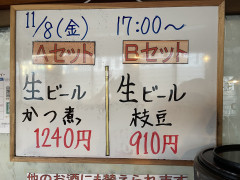 11/8(金) 17:00〜
Aセット
生ビール
かつ煮
1240円
Bセット
生ビール
枝豆
910円
他のお酒にも替えられます